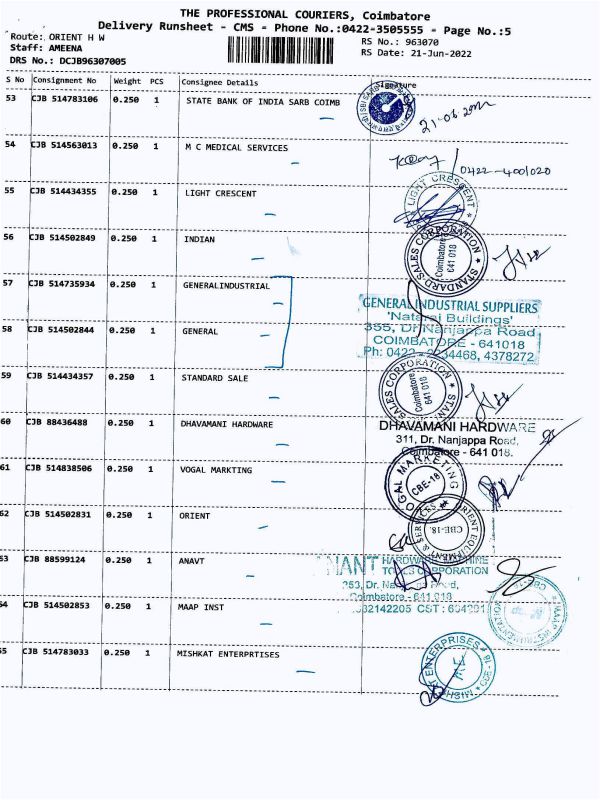 THE PROFESSIONAL COURIERS, Coimbatore
Delivery Runsheet - CMS - Phone No.:0422-3505555 - Page No.:5
Route: ORIENT H W
RS No.: 963070
Staff: AMEENA
RS Date: 21-Jun-2022
DRS No.: DCJB96307005
S No Consignment No Weight PCS Consignee Details Signature
53 CJB 514783106 0.250 1 STATE BANK OF INDIA SARB COIMB
54 CJB 514563013 0.250 1 M C MEDICAL SERVICES
0422-400/020
55 CJB 514434355 0.250 1 LIGHT CRESCENT
LIGHT CRESCENT
56 CJB 514502849 0.250 1 INDIAN
STANDARD SALES CORPORATION
Coimbatore
641 018
57 CJB 514735934 0.250 1 GENERALINDUSTRIAL
GENERAL INDUSTRIAL SUPPLIERS
'Nataraj Buildings'
355, Dr.Nanjappa Road
58 CJB 514502844 0.250 1 GENERAL
COIMBATORE - 641018
4378272
59 CJB 514434357 0.250 1 STANDARD SALE
SALES CORPORATION
Coimbatore
641 018
60 CJB 88436488 0.250 1 DHAVAMANI HARDWARE
DHAVAMANI HARDWARE
311, Dr. Nanjappa Road,
Coimbatore - 641 018.
61 CJB 514838506 0.250 1 VOGAL MARKTING
OGAL MARKETING
CBE-18
62 CJB 514502831 0.250 1 ORIENT
ORIENT EQUIPMENT & SERVICES
CBE-18.
53 CJB 88599124 0.250 1 ANAVT
NANT HARDWARE MACHINE
TOOLS CORPORATION
Coimbatore - 641 018
54 CJB 514502853 0.250 1 MAAP INST
55 CJB 514783033 0.250 1 MISHKAT ENTERPRTISES
ENTERPRISES
CBE - 18